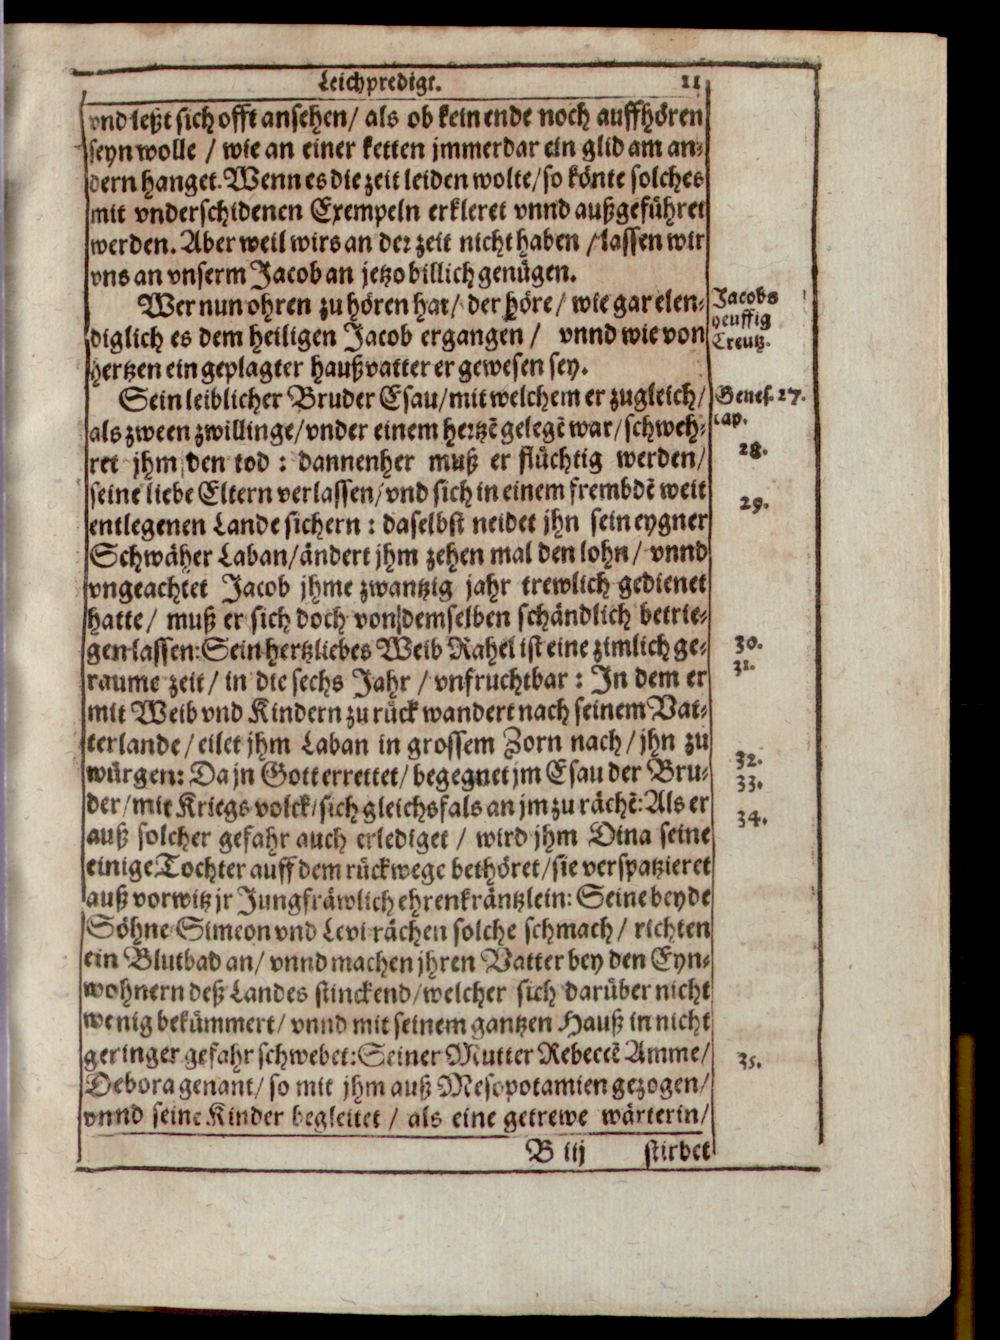 Leichpredigt. 11
vnd leßt sich offt ansehen/ als ob kein ende noch auffhören
seyn wolle / wie an einer ketten jmmerdar ein glid am an-
dern hanget. Wenn es die zeit leiden wolte/ so könte solches
mit vnderschidenen Exempeln erkleret vnnd außgeführet
werden. Aber weil wirs an der zeit nicht haben / lassen wir
vns an vnserm Jacob an jetzo billich genügen.
Wer nun ohren zu hören hat/ der höre/ wie gar elen-
diglich es dem heiligen Jacob ergangen / vnnd wie von
hertzen ein geplagter haußvatter er gewesen sey.
Jacobs
heuffig
Creutz.
Sein leiblicher Bruder Esau/ mit welchem er zugleich/
als zween zwillinge/ vnder einem hertzẽ gelegẽ war/ schweh-
ret jhm den tod : dannenher muß er flüchtig werden/
seine liebe Eltern verlassen/ vnd sich in einem frembdẽ weit
entlegenen Lande sichern : daselbst neidet jhn sein eygner
Schwäher Laban/ ändert jhm zehen mal den lohn/ vnnd
vngeachtet Jacob jhme zwantzig jahr trewlich gedienet
hatte/ muß er sich doch von demselben schändlich betrie-
gen lassen: Sein hertzliebes Weib Rahel ist eine zimlich ge-
raume zeit/ in die sechs Jahr / vnfruchtbar : In dem er
mit Weib vnd Kindern zu rück wandert nach seinem Vat-
terlande/ eilet jhm Laban in grossem Zorn nach/ jhn zu
würgen: Da jn Gott errettet/ begegnet jm Esau der Bru-
der/ mit Kriegs volck/ sich gleichsfals an jm zu rächẽ: Als er
auß solcher gefahr auch erlediget / wird jhm Dina seine
einige Tochter auff dem rückwege bethöret/ sie verspatzieret
auß vorwitz jr Jungfräwlich ehrenkräntzlein: Seine beyde
Söhne Simeon vnd Levi rächen solche schmach/ richten
ein Blutbad an/ vnnd machen jhren Vatter bey den Eyn-
wohnern deß Landes stinckend/ welcher sich darüber nicht
wenig bekümmert/ vnnd mit seinem gantzen Hauß in nicht
geringer gefahr schwebet: Seiner Mutter Rebeccẽ Amme/
Debora genant/ so mit jhm auß Mesopotamien gezogen/
vnnd seine Kinder begleitet / als eine getrewe wärterin/
Genes. 27.
cap.
28.
29.
30.
31.
32.
33.
34.
35.
B iij stirbet